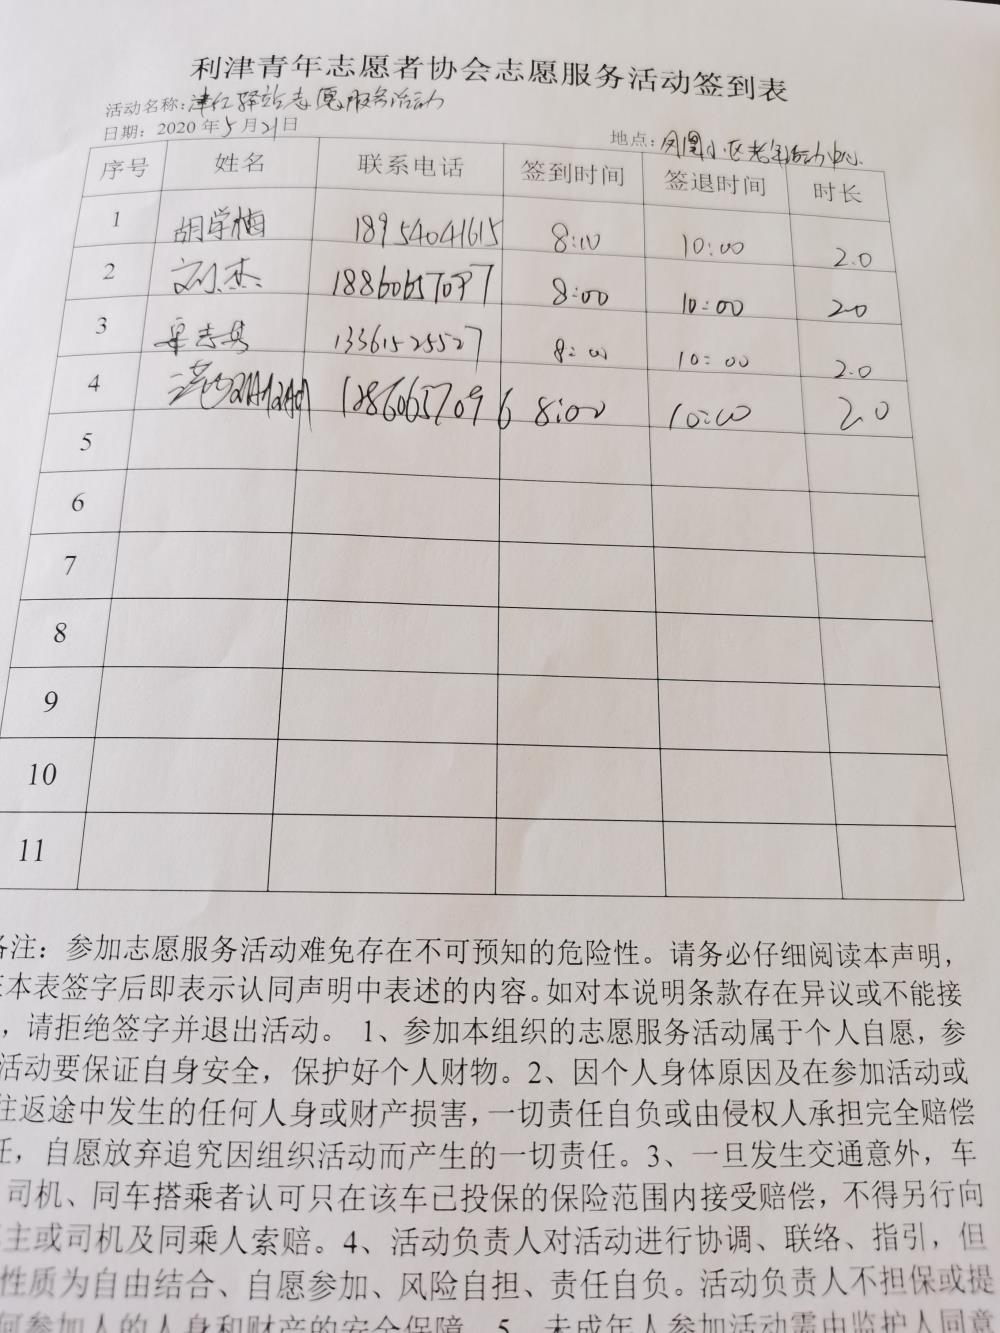 利津青年志愿者协会志愿服务活动签到表
活动名称:津红驿站志愿服务活动
日期: 2020年5月21日 地点:凤凰小区老年活动中心
序号 姓名 联系电话 签到时间 签退时间 时长
1 胡学梅 18954041615 8:00 10:00 2.0
2 刘杰 18860657097 8:00 10:00 2.0
3 13361525527 8:00 10:00 2.0
4 8:00 10:00 2.0
5
6
7
8
9
10
11
备注: 参加志愿服务活动难免存在不可预知的危险性。请务必仔细阅读本声明,
本表签字后即表示认同声明中表述的内容。如对本说明条款存在异议或不能接
,请拒绝签字并退出活动。 1、参加本组织的志愿服务活动属于个人自愿,参
活动要保证自身安全,保护好个人财物。2、因个人身体原因及在参加活动或
往返途中发生的任何人身或财产损害,一切责任自负或由侵权人承担完全赔偿
任,自愿放弃追究因组织活动而产生的一切责任。3、一旦发生交通意外,车
司机、同车搭乘者认可只在该车已投保的保险范围内接受赔偿,不得另行向
主或司机及同乘人索赔。4、活动负责人对活动进行协调、联络、指引,但
性质为自由结合、自愿参加、风险自担、责任自负。活动负责人不担保或提
何参加人的人身和财产的安全保障。5、未成年人参加活动需由监护人同意